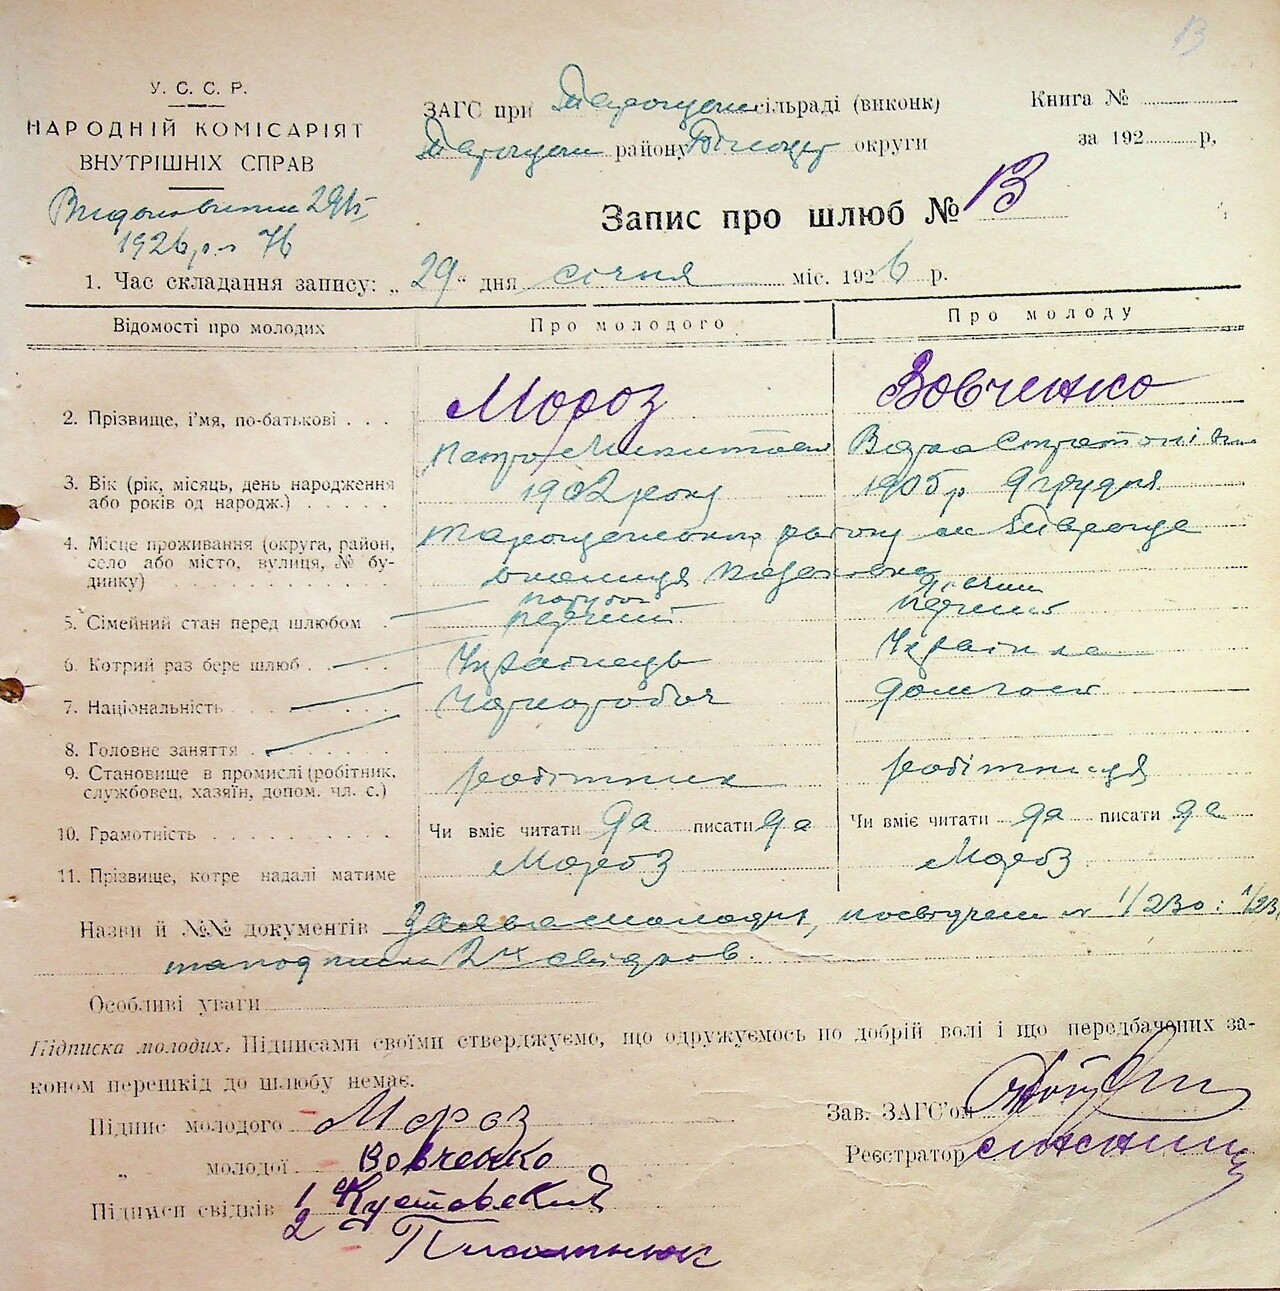 13
У. С. С. Р.
НАРОДНІЙ КОМІСАРІЯТ
ВНУТРІШНІХ СПРАВ
ЗАГС при сільраді (виконк)
району округи
Книга №
за 192 р,
29/І
1926 р. № 76
Запис про шлюб № 13
1. Час складання запису: „ 29 " дня січня міс. 1926 р.
Відомості про молодих
Про молодого
Про молоду
2. Прізвище, і'мя, по-батькові . . .
Мороз
Петро
Вовченко
3. Вік (рік, місяць, день народження
або років од народж.) . . . . .
1902 року
1905 р 9 грудня
4. Місце проживання (округа, район,
село або місто, вулиця, № бу-
динку) . . . . . . . . .
району м Тараща
околиця
5. Сімейний стан перед шлюбом .
парубок
дівчина
6. Котрий раз бере шлюб . . . .
перший
перший
7. Національність . . . . . .
Українець
Українка
8. Головне заняття . . . . . . .
Чорнороб
9. Становище в промислі (робітник,
службовец, хазяїн, допом. чл. с.)
робітник
робітниця
10. Грамотність . . . . . . . .
Чи вміє читати да писати да
Чи вміє читати да писати да
11. Прізвище, котре надалі матиме
Мороз
Мороз
Назви й №№ документів Заява молодих, посвідчен № 1/230: 1/231
та подписи 2х свідков.
Особливі уваги
Підписка молодих. Підписами своїми стверджуємо, що одружуємось по добрій волі і що передбачених за-
коном перешкід до шлюбу немає.
Підпис молодого Мороз
„ молодої Вовченко
Підписи свідків 1 Кустовский
2
Зав. ЗАГС'ом
Реєстратор